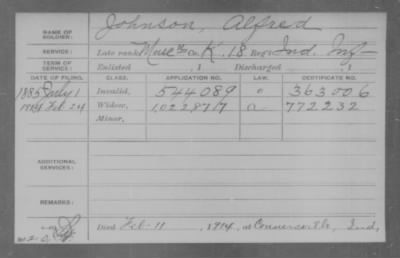 NAME OF SOLDIER: Johnson, Alfred
SERVICE: Late rank, Muse Co. K, 18 Reg't Ind. Inf
TERM OF SERVICE: Enlisted , 1 Discharged , 1
DATE OF FILING. CLASS. APPLICATION NO. LAW. CERTIFICATE NO.
1885 July 1 Invalid, 544089 363006
1914 Feb 24 Widow, 1022877 a 772232
Minor,
ADDITIONAL SERVICES:
REMARKS:
Died Feb-11, 1914, at Connersville, Ind,